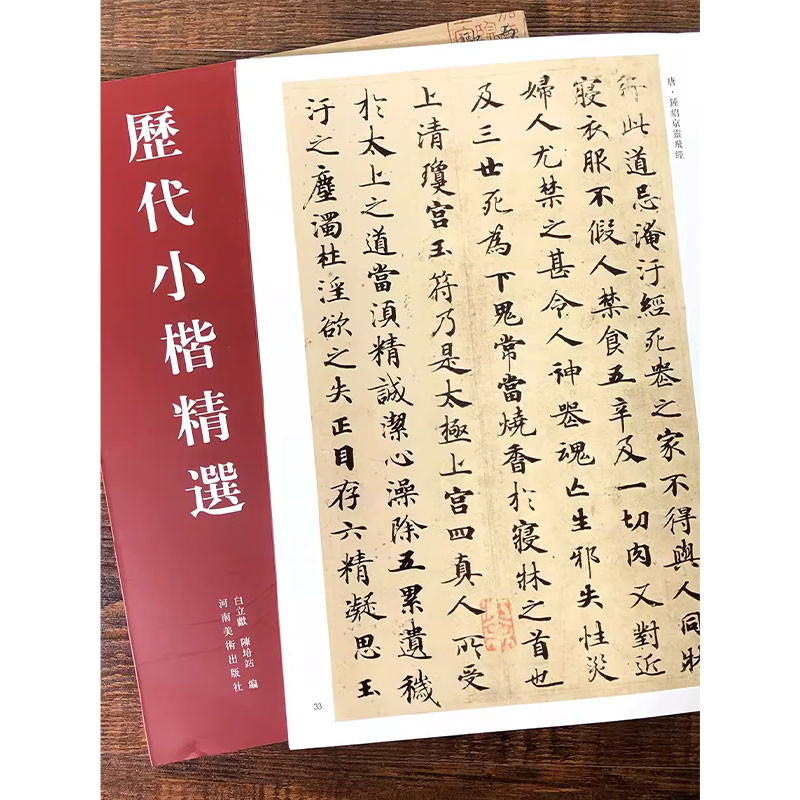 歷代小楷精選
白立獻 陳培站 編
河南美術出版社
唐·鍾紹京靈飛經
行此道忌淹汙經死喪之家不得與人同牀
寢衣服不假人禁食五辛及一切肉又對近
婦人尤禁之甚令人神喪魂亡生邪失性災
及三世死為下鬼常當燒香於寢牀之首也
上清瓊宮玉符乃是太極上宮四真人所受
於太上之道當須精誠潔心澡除五累遺穢
汙之塵濁杜淫欲之失正目存六精凝思玉
33